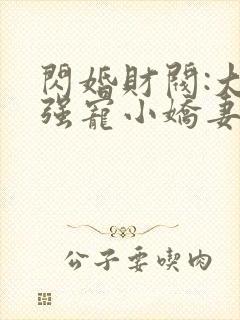 閃婚財閥:大
强寵小嬌妻
公子要喫肉